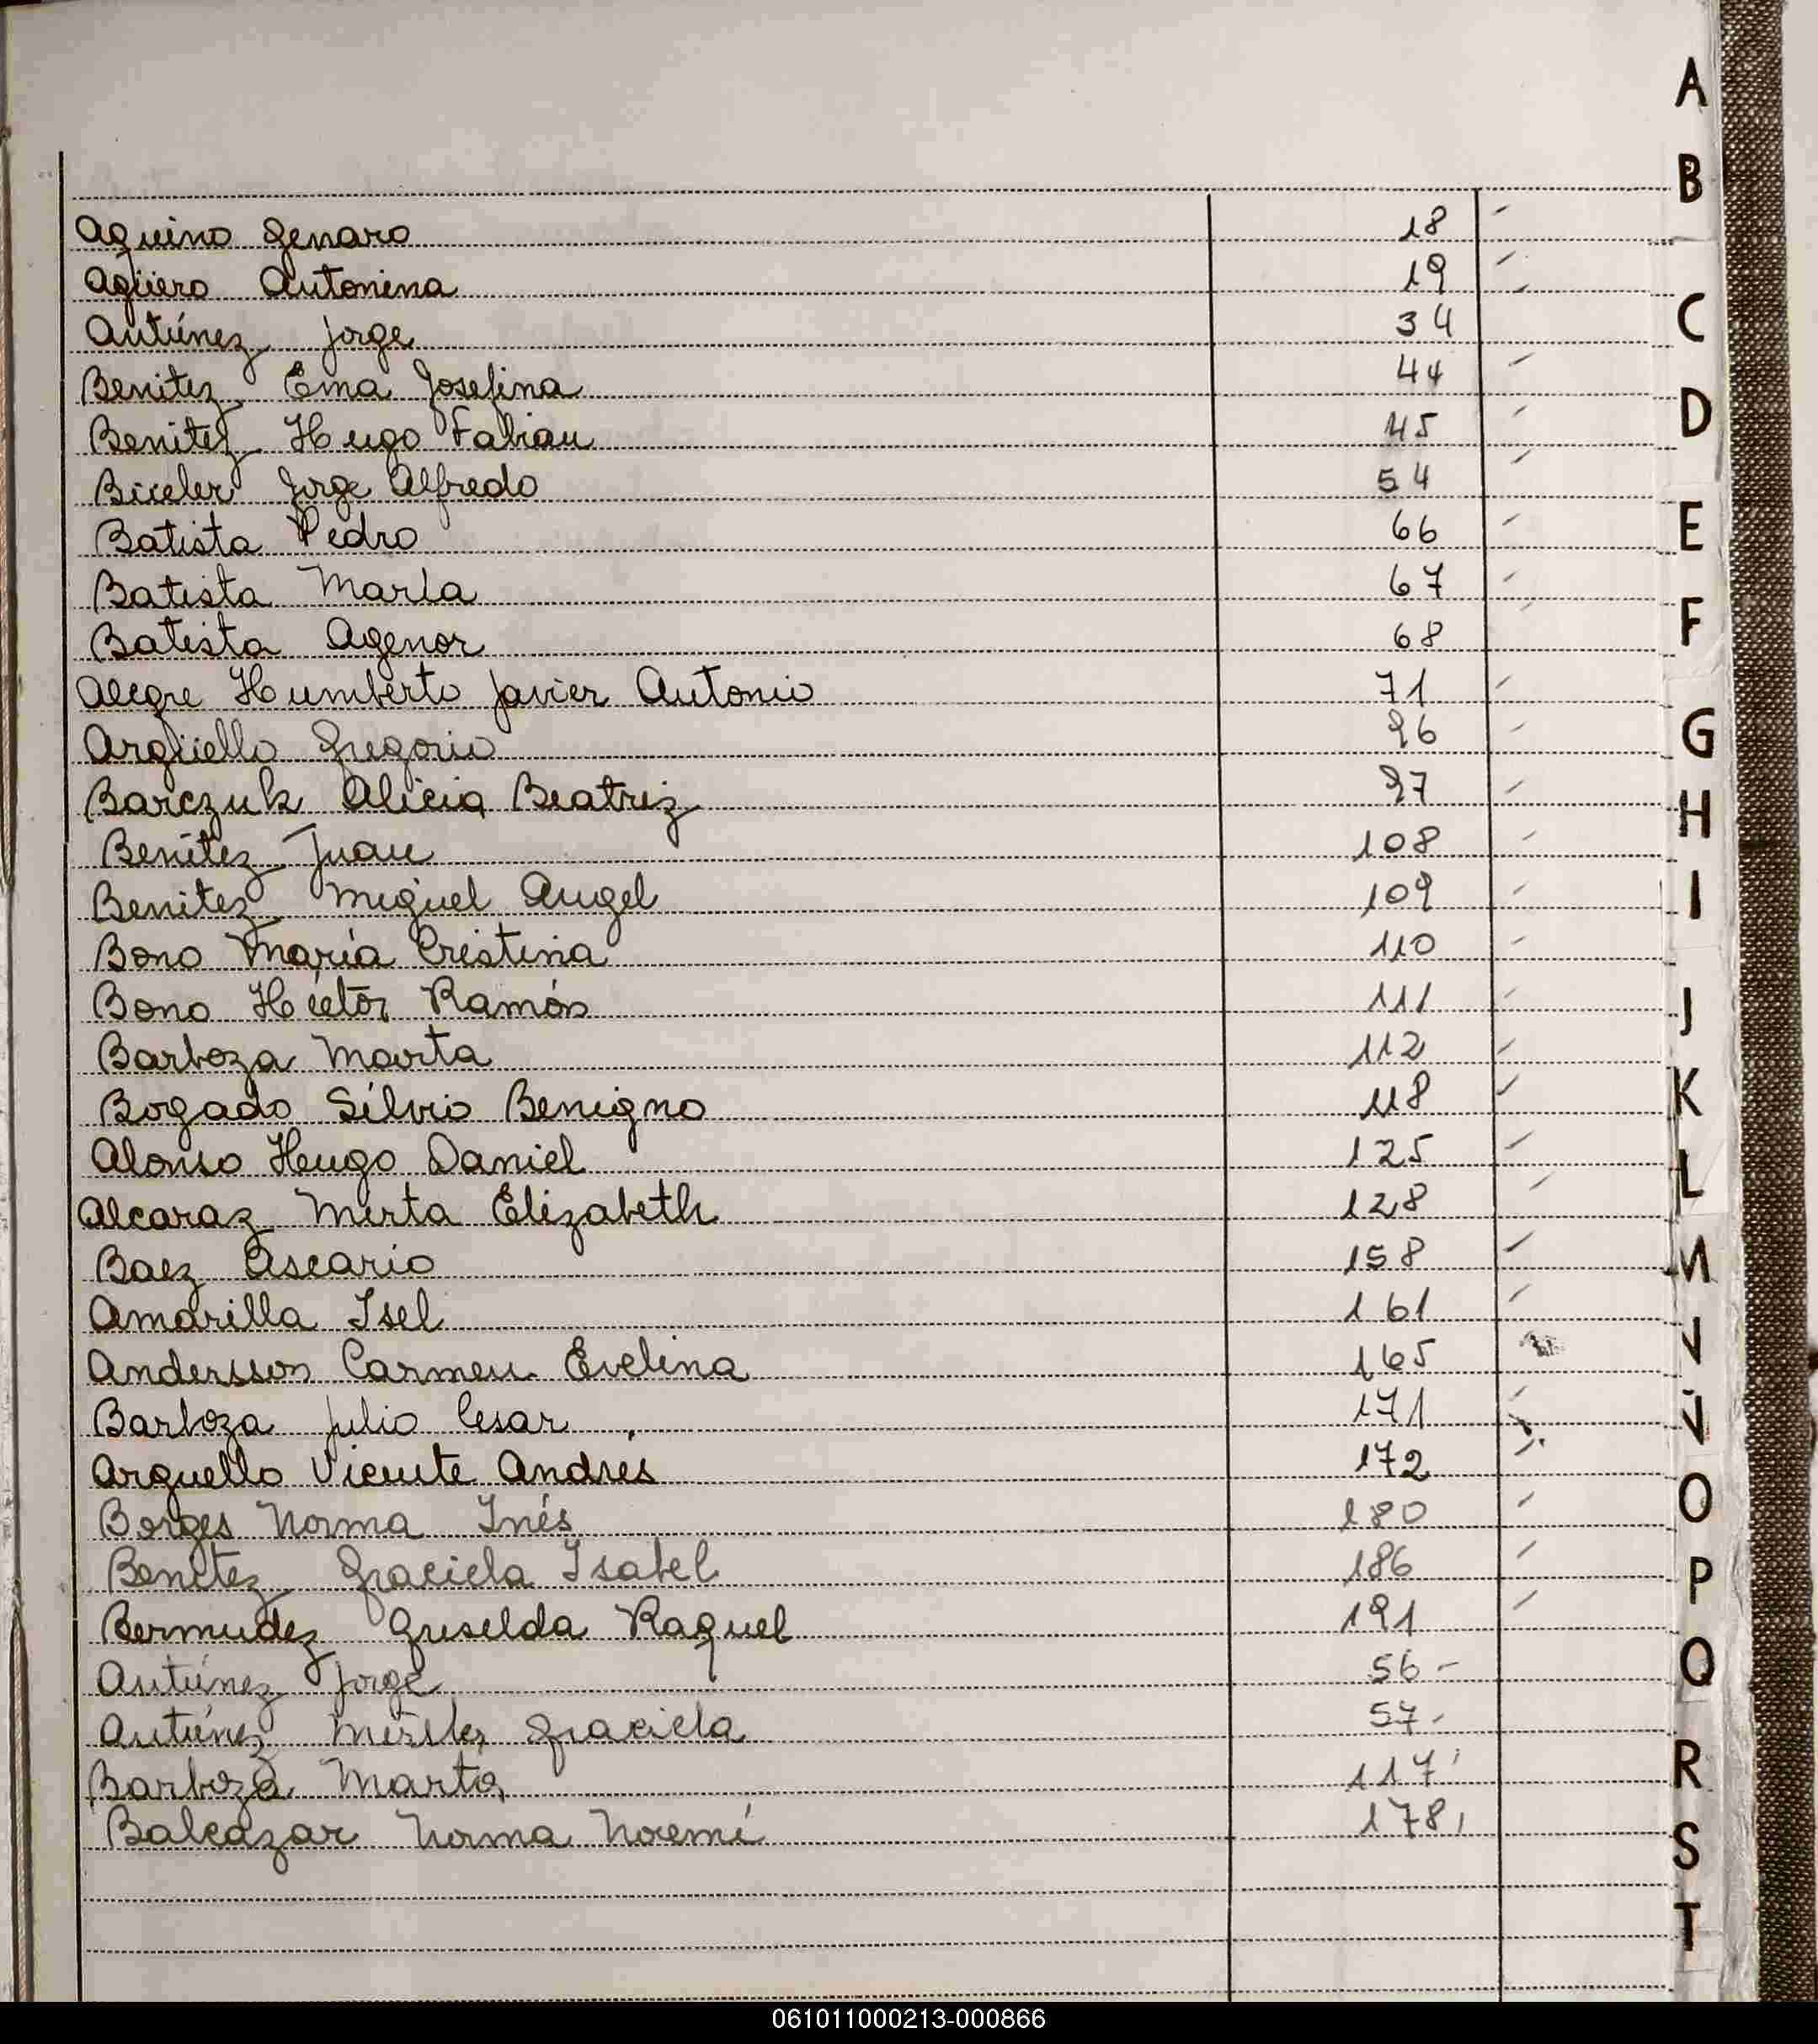 A
B
Aquino Genaro 18
Agüero Antonina 19
Antúnez Jorge 34
C
Benitez Ema Josefina 44
Benitez Hugo Fabian 45
D
Bixeler Jorge Alfredo 54
Batista Pedro 66
E
Batista María 67
Batista Agenor 68
F
Alegre Humberto Javier Antonio 71
Argüello Gregorio 96
G
Barczuk Alicia Beatriz 97
H
Benitez Juan 108
Benitez Miguel Angel 109
I
Bono María Cristina 110
Bono Héctor Ramón 111
J
Barboza Marta 112
Bogado Silvio Benigno 118
K
Alonso Hugo Daniel 125
L
Alcaraz Mirta Elizabeth 128
Baez Ascario 158
M
Amarilla Isel 161
N
Andersson Carmen Evelina 165
Barboza Julio Cesar 171
Ñ
Arguello Vicente Andrés 172
Borges Norma Inés 180
O
Benitez Graciela Isabel 186
P
Bermudez Griselda Raquel 191
Antúnez Jorge 56 -
Q
Antúnez Graciela 57 -
Barboza Marta 117
R
Balcazar Norma Noemí 178
S
T
061011000213-000866